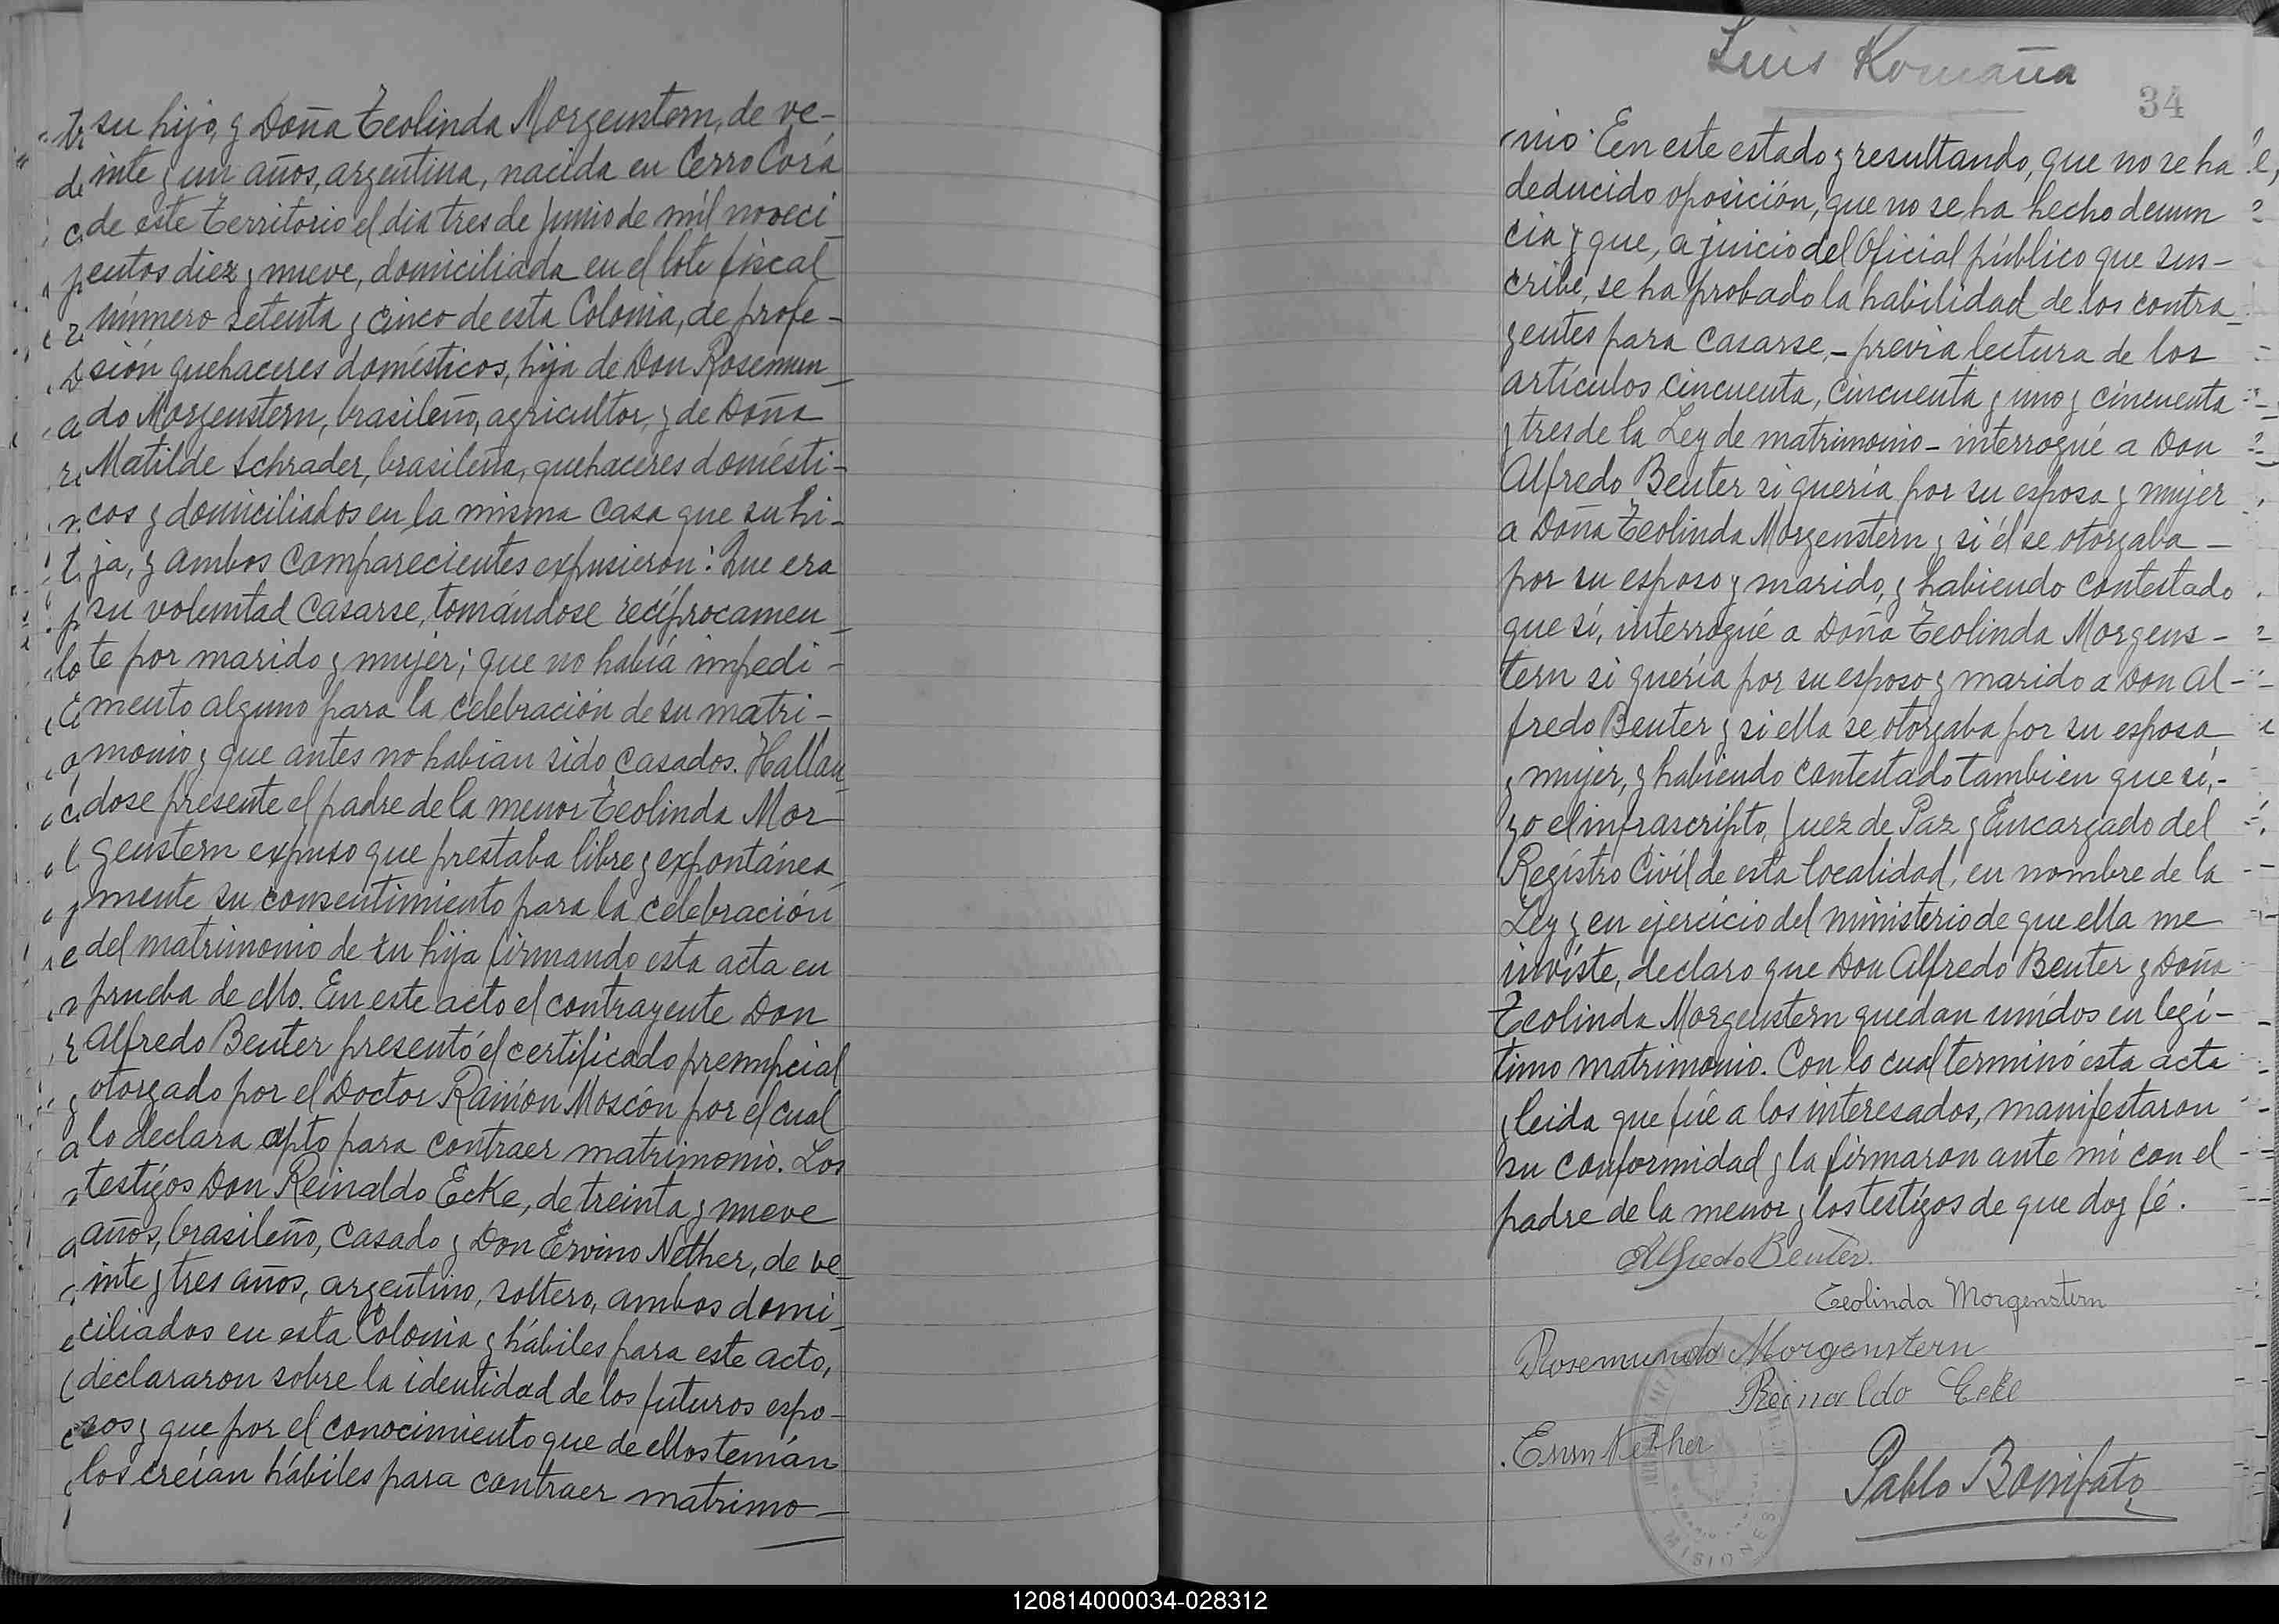 su hijo, y Doña Teolinda Morgenstern, de ve-
inte y un años, argentina, nacida en Cerro Corá
de este Territorio el dia tres de Junio de mil noveci_
entos diez y nueve, domiciliada en el lote fiscal
número setenta y cinco de esta Colonia, de profe-
sión quehaceres domésticos, hija de Don Rosemun_
do Morgenstern, brasileño, agricultor, y de Doña
Matilde Schrader, brasileña, quehaceres domésti-
cos y domiciliados en la misma casa que su hi-
ja, y ambos comparecientes expusieron: Que era
su voluntad casarse, tomándose recíprocamen_
te por marido y mujer; que no había impedi-
mento alguno para la celebración de su matri-
monio y que antes no habian sido casados. Hallan_
dose presente el padre de la menor Teolinda Mor
genstern expuso que prestaba libre y expontánea_
mente su consentimiento para la celebración
del matrimonio de su hija firmando esta acta en
prueba de ello. En este acto el contrayente Don
Alfredo Beuter presentó el certificado prenupcial
otorgado por el Doctor Ramón Moscón por el cual
lo declara apto para contraer matrimonio. Los
testigos Don Reinaldo Ecke, de treinta y nueve
años, brasileño, casado y Don Ervino Nether, de ve_
inte y tres años, argentino, soltero, ambos domi_
ciliados en esta Colonia y hábiles para este acto,
declararon sobre la identidad de los futuros espo-
sos y que por el conocimiento que de ellos tenían
los creían hábiles para contraer matrimo-
Luis Romaña
34
nio. En este estado y resultando, que no se ha
deducido oposición, que no se ha hecho denun
cia y que, a juicio del Oficial público que sus-
cribe, se ha probado la habilidad de los contra_
yentes para casarse,- previa lectura de los
artículos cincuenta, cincuenta y uno y cincuenta
y tres de la Ley de matrimonio- interrogué a Don
Alfredo Beuter si quería por su esposa y mujer
a Doña Teolinda Morgenstern y si él se otorgaba-
por su esposo y marido, y habiendo contestado
que sí, interrogué a Doña Teolinda Morgens-
tern si quería por su esposo y marido a Don Al-
fredo Beuter y si ella se otorgaba por su esposa
y mujer, y habiendo contestado tambien que sí,-
yo el infrascripto, Juez de Paz y Encargado del
Regístro Civíl de esta localidad, en nombre de la
Ley y en ejercicio del ministerio de que ella me
invíste, declaro que Don Alfredo Beuter y Doña
Teolinda Morgenstern quedan unídos en legí-
timo matrimonio. Con lo cual terminó esta acta
y leida que fué a los interesados, manifestaron
su conformidad y la firmaron ante mí con el
padre de la menor y los testigos de que doy fé.
Alfredo Beuter.
Teolinda Morgenstern
Rosemundo Morgenstern
Reinaldo Ecke
Ervin Nether
Pablo Bonifato
MISIONES
120814000034-028312